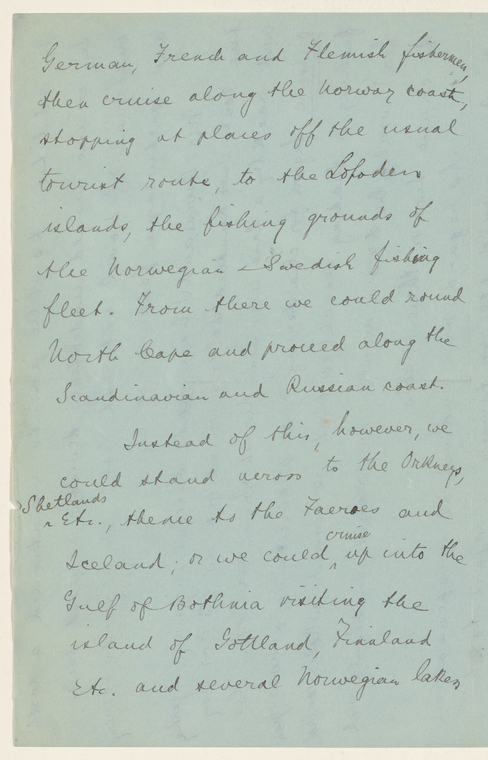 German, French and Flemish fishermen,
then cruise along the Norway coast,
stopping at places off the usual
tourist route, to the Lofoden
islands, the fishing grounds of
the Norwegian - Swedish fishing
fleet. From there we could round
North Cape and proceed along the
Scandinavian and Russian coast.
Instead of this, however, we
could stand across to the Orkneys,
Shetlands
Etc., thence to the Faeroes and
cruise
Iceland; or we could up into the
Gulf of Bothnia visiting the
island of Gottland, Finland
Etc. and several Norwegian lakes